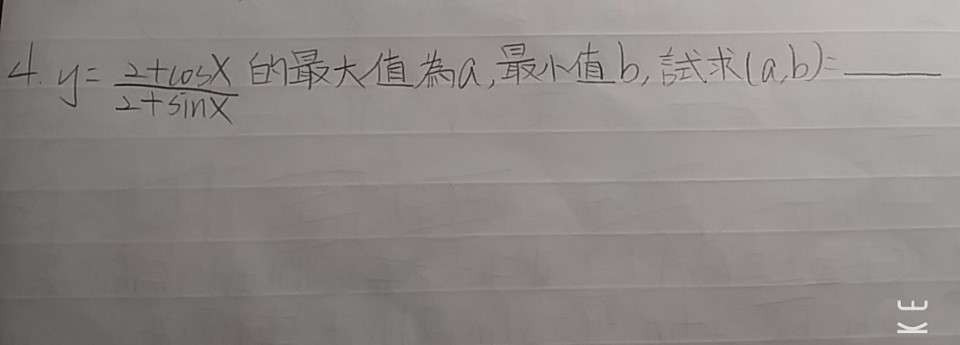 4. y= 2+cosX / 2+sinX 的最大值為a,最小值b,試求(a,b)=____
KE